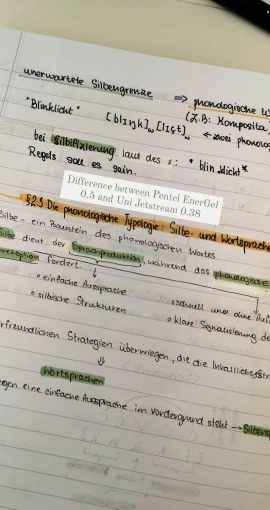 unerwartete Silbengrenze ⇒ phonologische W
(z.B: Komposita
"Blinklicht" [blɪŋk]ω [lɪçt]ω ← zwei phonolog
bei Silbifizierung laut des
Regels soll es sein.
Difference between Pentel EnerGel
0.5 and Uni Jetstream 0.38
§2.1 Die phonologische Typologie: Silbe- und Wortsprache
Silbe - ein Baustein des phonologischen Wortes
dient der Sprachproduktion, während das phonologische
fördert.
• einfache Aussprache
• schnell und ohne
• silbische Strukturen
• klare Signalisierung de
freundlichen Strategien überwiegen, die die
⇓
Wortsprachen
gegen eine einfache Aussprache im Vordergrund steht → Silbens